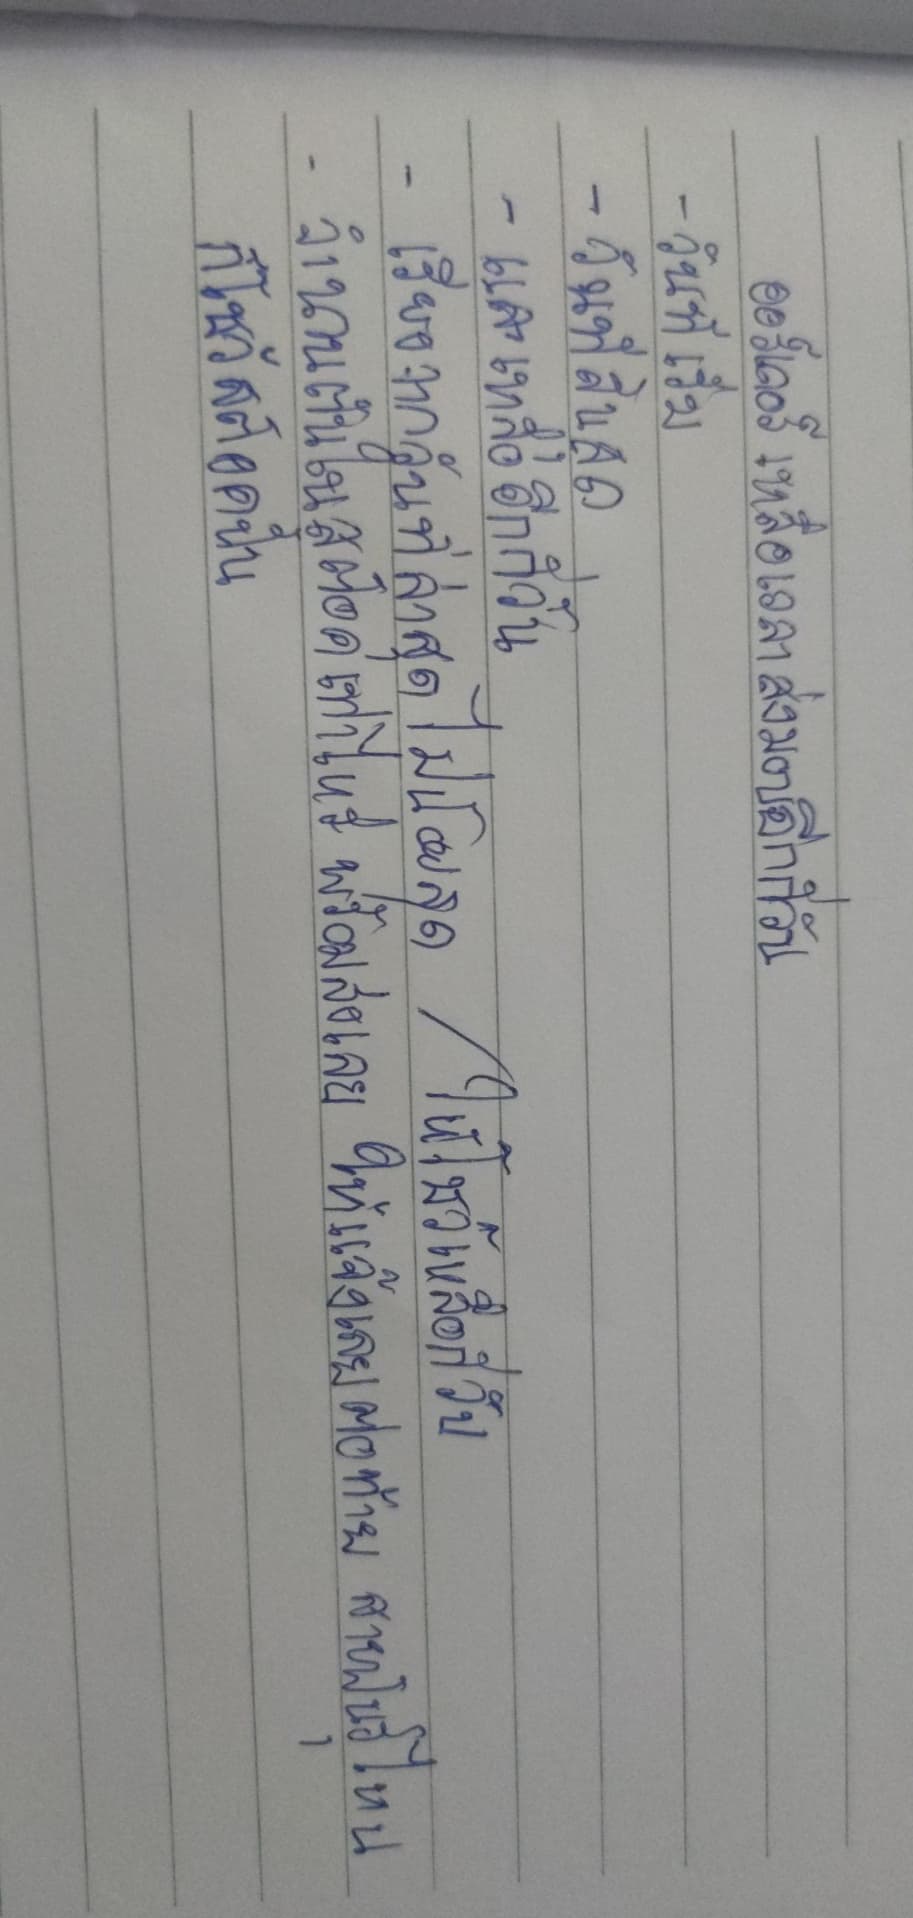 ออร์เดอร์ เหลือเวลาส่งมอบอีกกี่วัน
- วันที่เริ่ม
- วันที่สิ้นสุด
- และเหลืออีกกี่วัน
- เรียงจากวันที่ล่าสุดไปน้อยสุด / ให้โชว์เหลือกี่วัน
- จำนวนต้นในสต๊อคเท่าไหร่ พร้อมส่งเลย ให้แจ้งเลยต่อท้าย สายพันธุ์ไหน
ก็โชว์สต๊อคนั้น